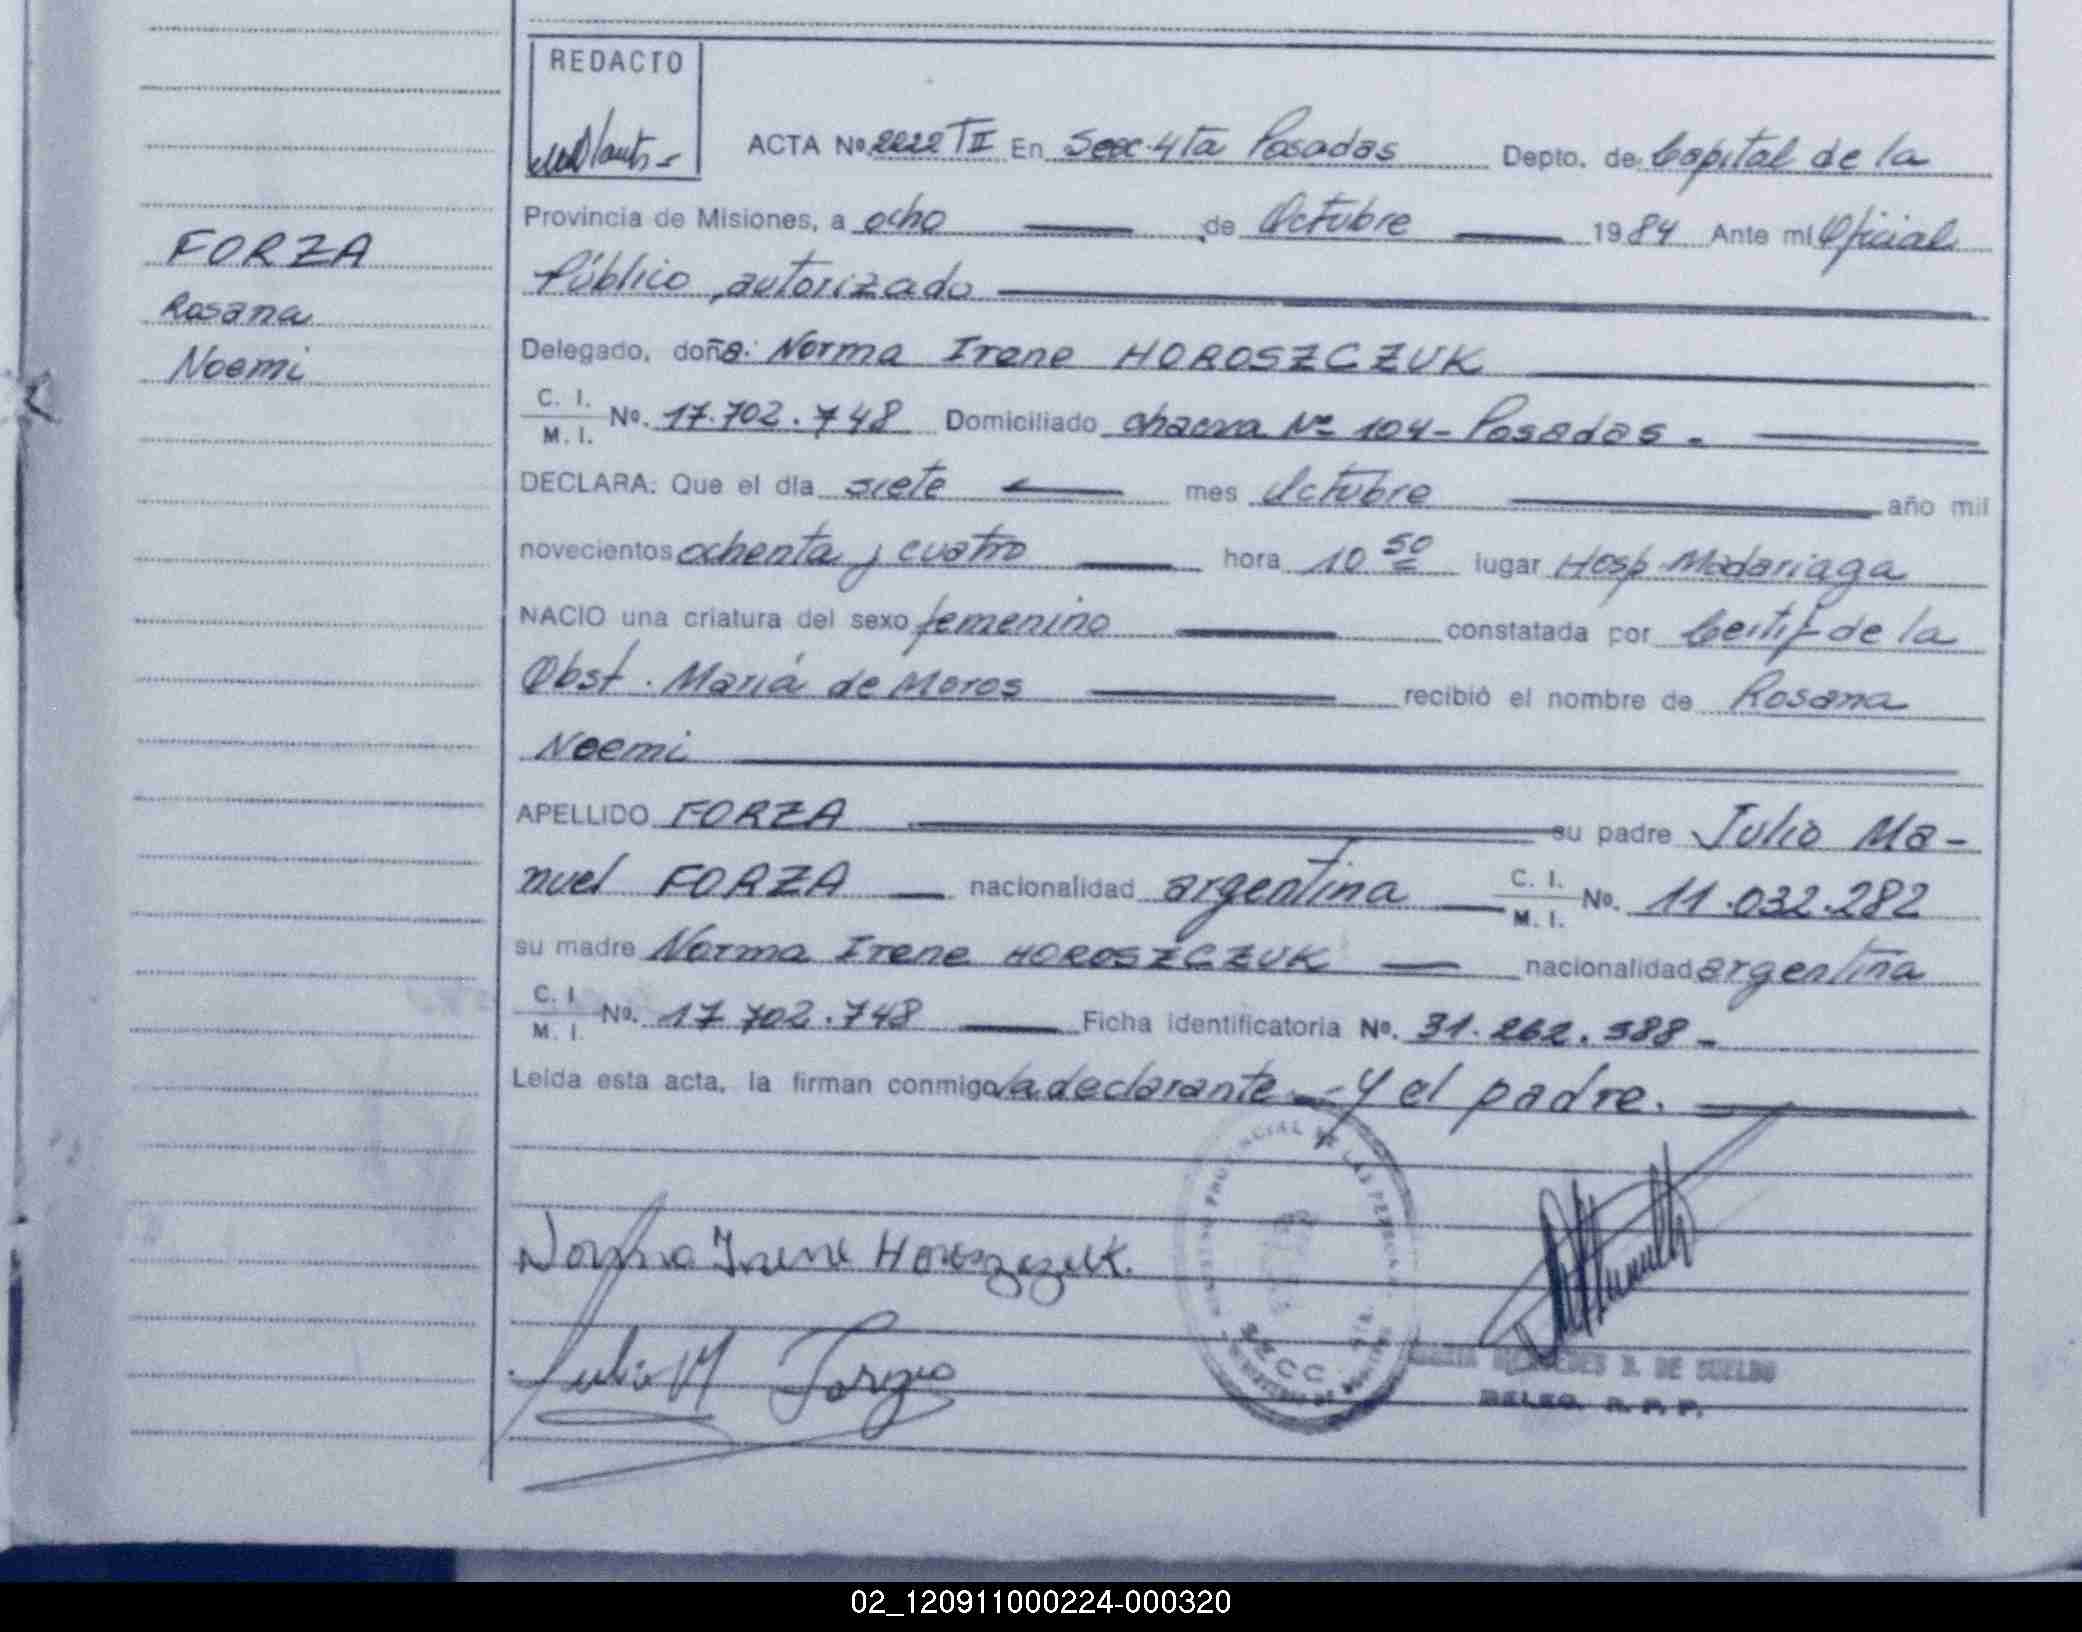 REDACTO
ACTA Nº 2222 TII En Secc. 4ta Posadas Depto. de Capital de la
Provincia de Misiones, a ocho de Octubre 1984 Ante mí Oficial
Público autorizado
FORZA
Rosana
Noemi
Delegado, doña: Norma Irene HOROSZCZUK
C. I.
M. I. Nº. 17.702.748 Domiciliado chacra Nº 104 - Posadas -
DECLARA: Que el día siete mes Octubre año mil
novecientos ochenta y cuatro hora 10 50 lugar Hosp. Madariaga
NACIO una criatura del sexo femenino constatada por Certif. de la
Obst. María de Moros recibió el nombre de Rosana
Noemi
APELLIDO FORZA su padre Julio Ma-
nuel FORZA nacionalidad argentina C. I.
M. I. Nº. 11.032.282
su madre Norma Irene HOROSZCZUK nacionalidad argentina
C. I.
M. I. Nº. 17.702.748 Ficha identificatoria Nº. 31.262.588 -
Leída esta acta, la firman conmigo la declarante - y el padre.
Norma Irene Horoszczuk.
Julio M Forza
DE SUELDO
DELEG. R. P. P.
02_120911000224-000320